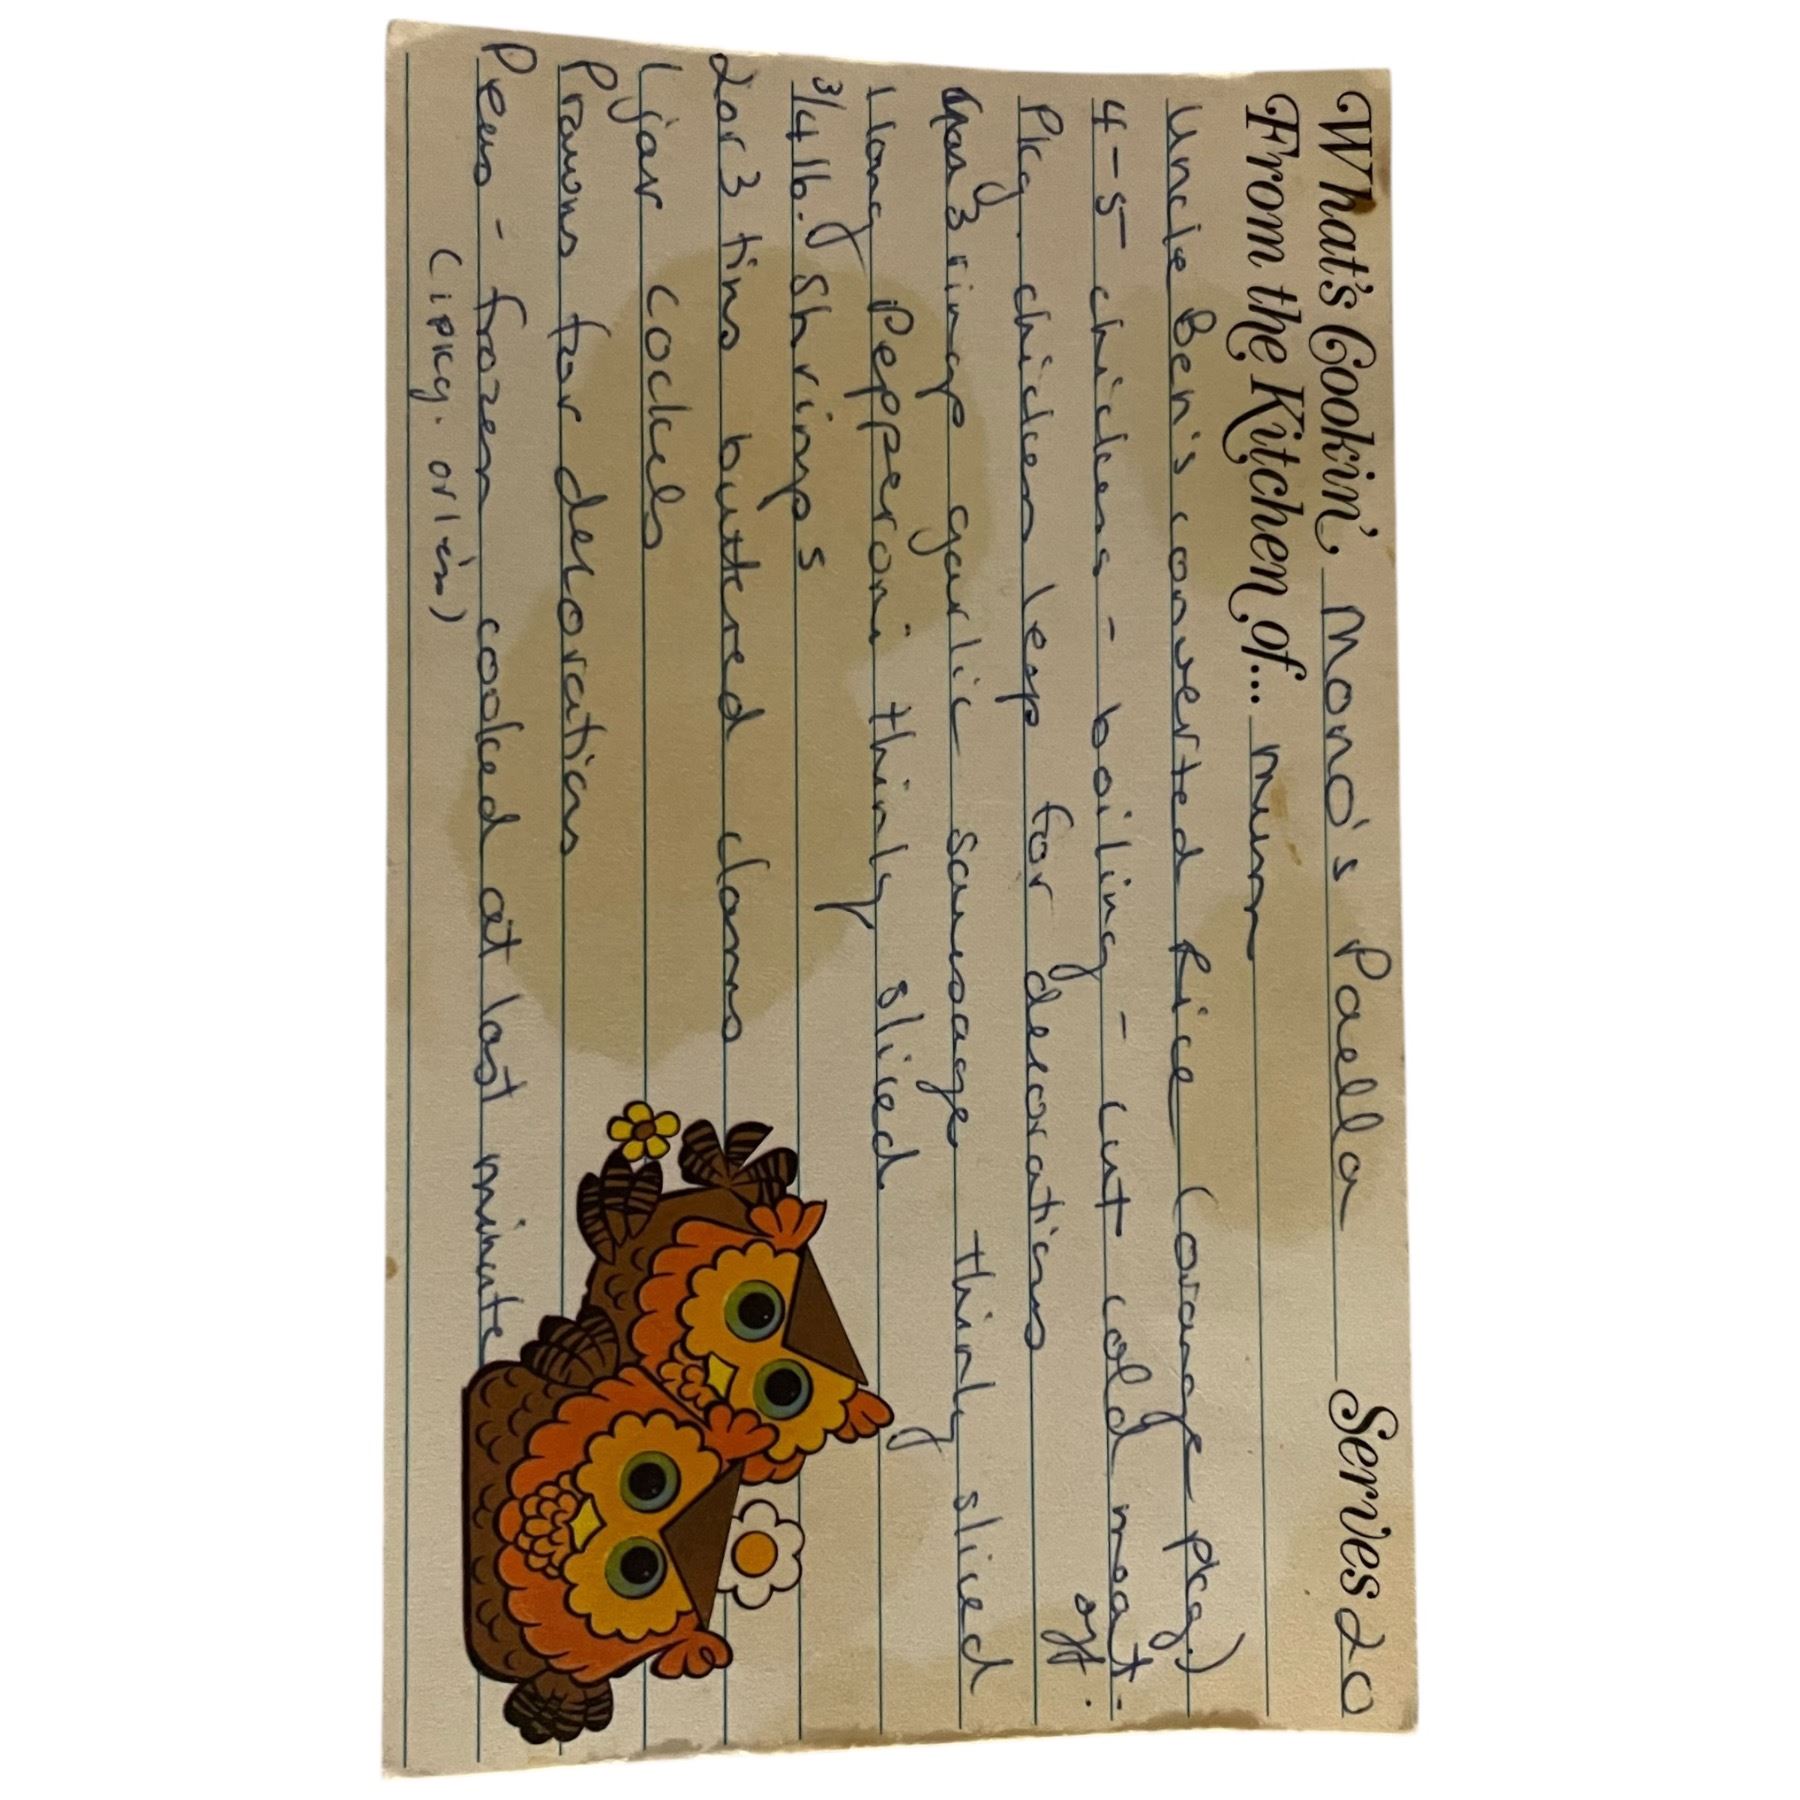 What's Cookin', Mono's Paella Serves 20
From the Kitchen of... Mum
Uncle Ben's converted Rice (orange pkg.)
4-5 chickens - boiling - cut cold meat
off.
Pkg. chicken legs for decorations
3 rings garlic sausage thinly sliced
1 long Pepperoni thinly sliced
3/4 lb. Shrimps
2 or 3 tins buttered clams
1 jar cockels
Prawns for decorations
Peas - frozen cooked at last minute
(1 pkg.